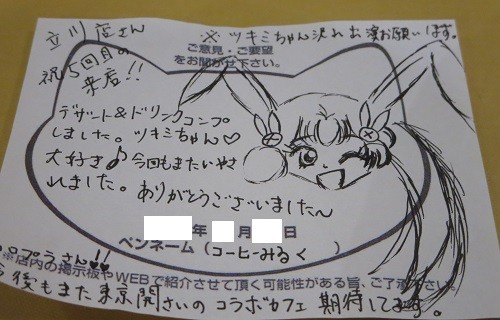 立川店さん
祝5回目の
来店!!
※ツキミちゃん沢れ出演お願いします。
ご意見・ご要望
をお聞かせ下さい。
デザート&ドリンクコンプ
しました。ツキミちゃん♡
大好き♪今回もまたいやさ
れました。ありがとうございました〜
年 月 日
ペンネーム(コーヒーみるく )
プラさん!!
※店内の掲示板やWEBで紹介させて頂く可能性がある旨、ご了承下さい。
今後もまた東京開さいのコラボカフェ期待してます。